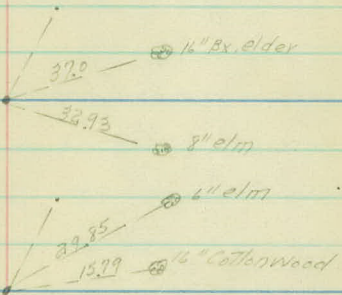 16" Bx. elder
37.0
32.93
8" elm
6" elm
29.85
15.79
16" Cottonwood